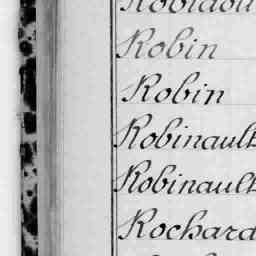 Robin
Robin
Robinault
Robinault
Rochard